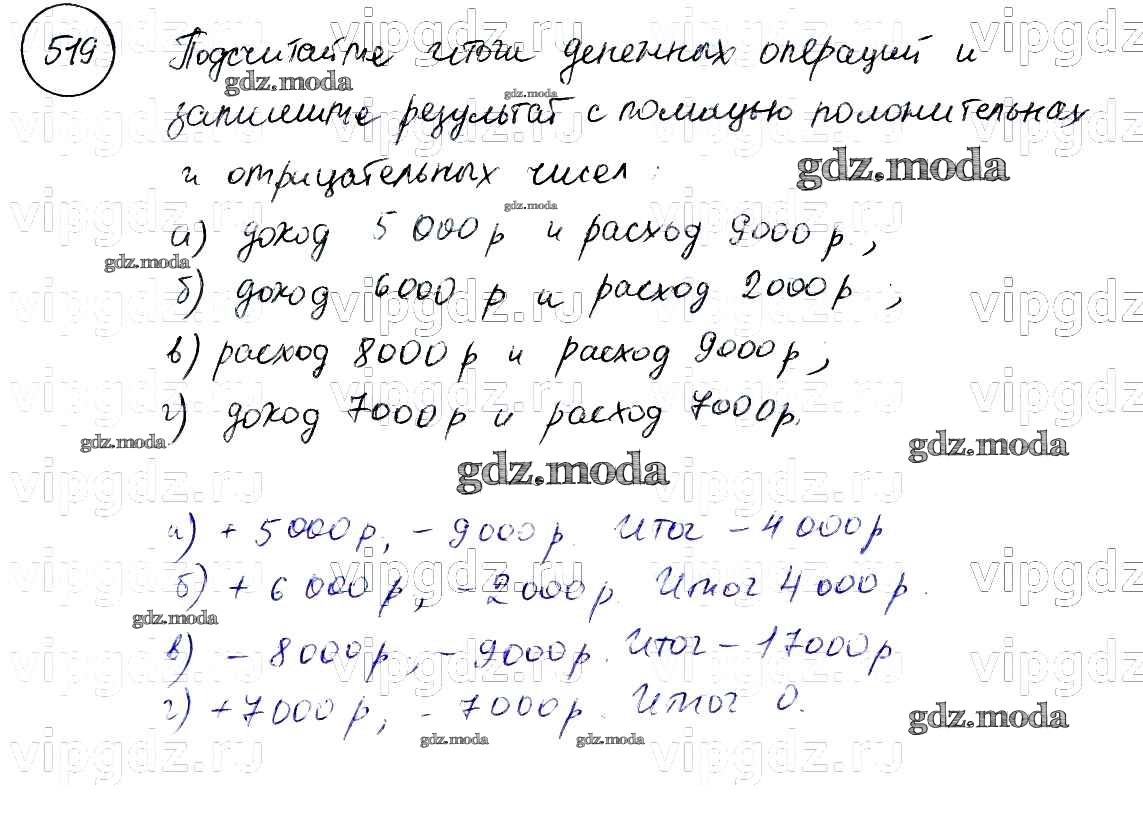 519 Подсчитайте итоги денежных операций и
запишите результат с помощью положительных
и отрицательных чисел:
а) доход 5 000 р и расход 9000 р,
б) доход 6000 р и расход 2000 р;
в) расход 8000 р и расход 9000 р,
г) доход 7000 р и расход 7000 р.
а) + 5 000 р, - 9000 р. Итог - 4 000 р
б) + 6 000 р, - 2000 р. Итог 4 000 р.
в) - 8000 р, - 9000 р. Итог - 17000 р
г) + 7000 р, - 7000 р. Итог 0.
gdz.moda
vipgdz.ru